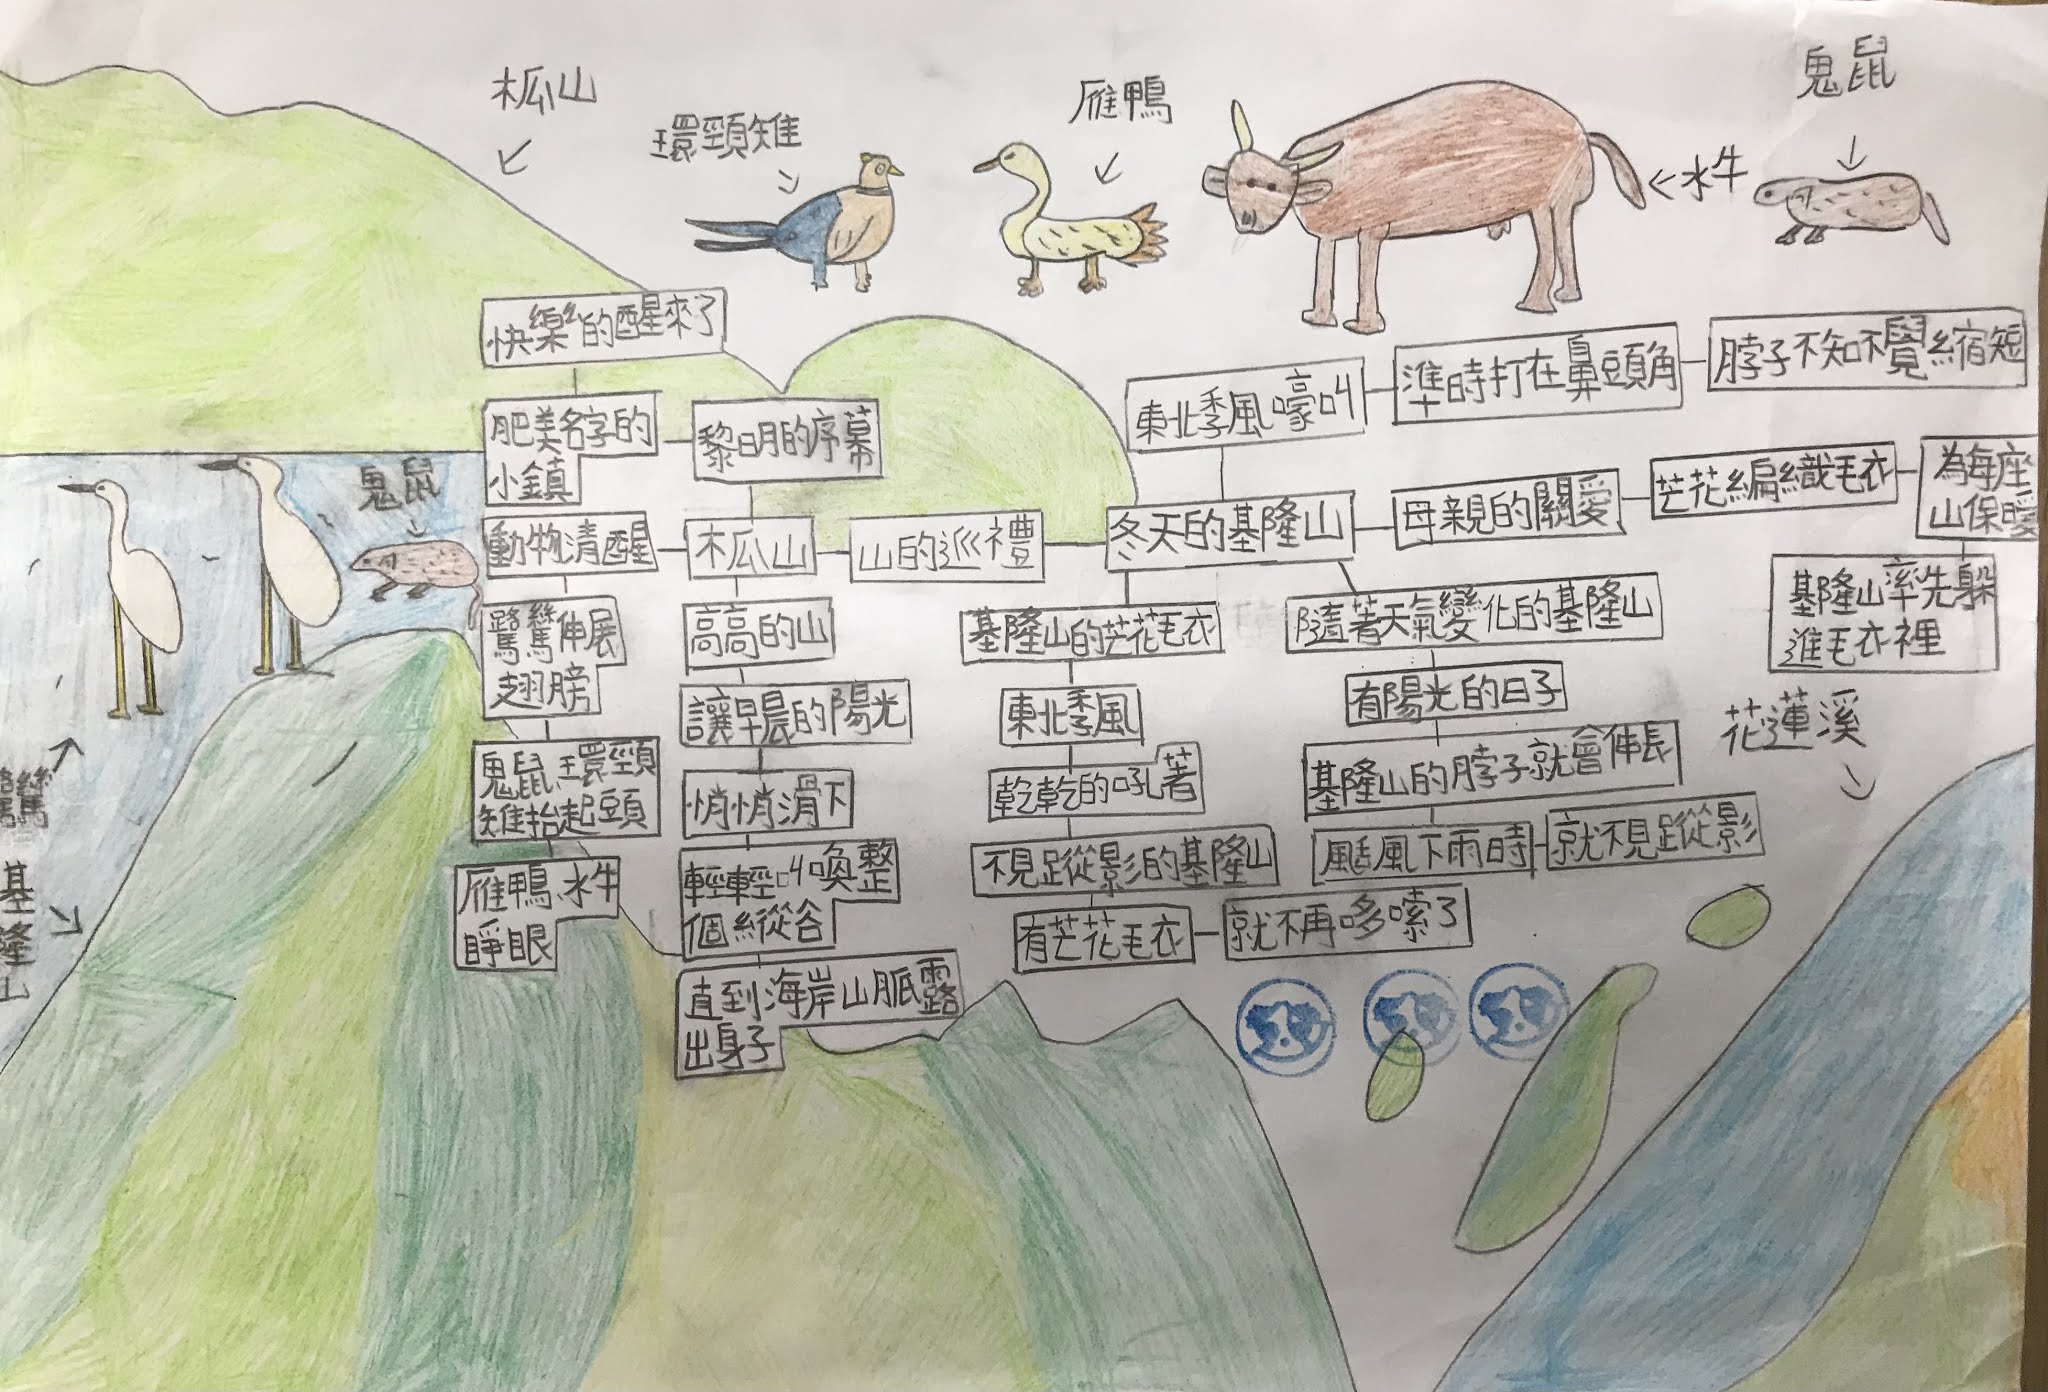 木瓜山
環頸雉
雁鴨
水牛
鬼鼠
快樂的醒來了
肥美名字的
小鎮
黎明的序幕
鬼鼠
動物清醒
木瓜山
山的巡禮
冬天的基隆山
東北季風嚎叫
準時打在鼻頭角
脖子不知不覺縮短
母親的關愛
芒花編織毛衣
為每座
山保暖
基隆山率先躲
進毛衣裡
鷺鷥伸展
翅膀
鬼鼠、環頸
雉抬起頭
雁鴨、水牛
睜眼
高高的山
讓早晨的陽光
悄悄滑下
輕輕叫喚整
個縱谷
直到海岸山脈露
出身子
基隆山的芒花毛衣
東北季風
乾乾的吼著
不見蹤影的基隆山
有芒花毛衣
就不再哆嗦了
隨著天氣變化的基隆山
有陽光的日子
基隆山的脖子就會伸長
颳風下雨時
就不見蹤影
花蓮溪
鷺鷥
基隆山